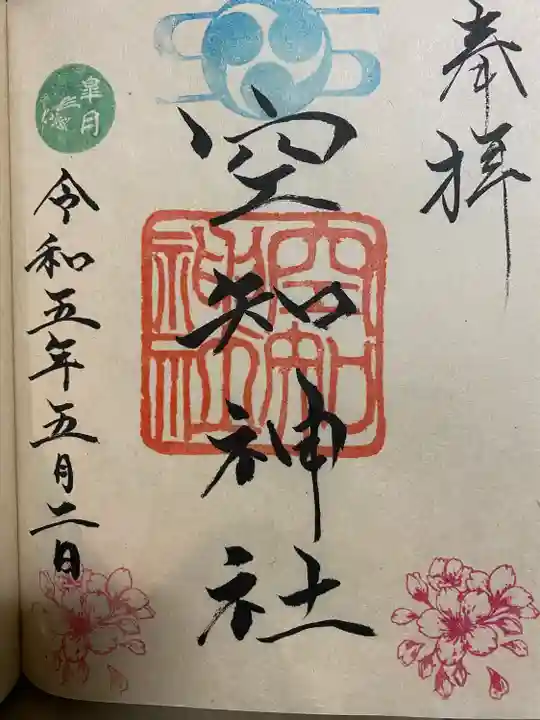 奉拝
空知神社
空知
神社
令和五年五月二日
皐月